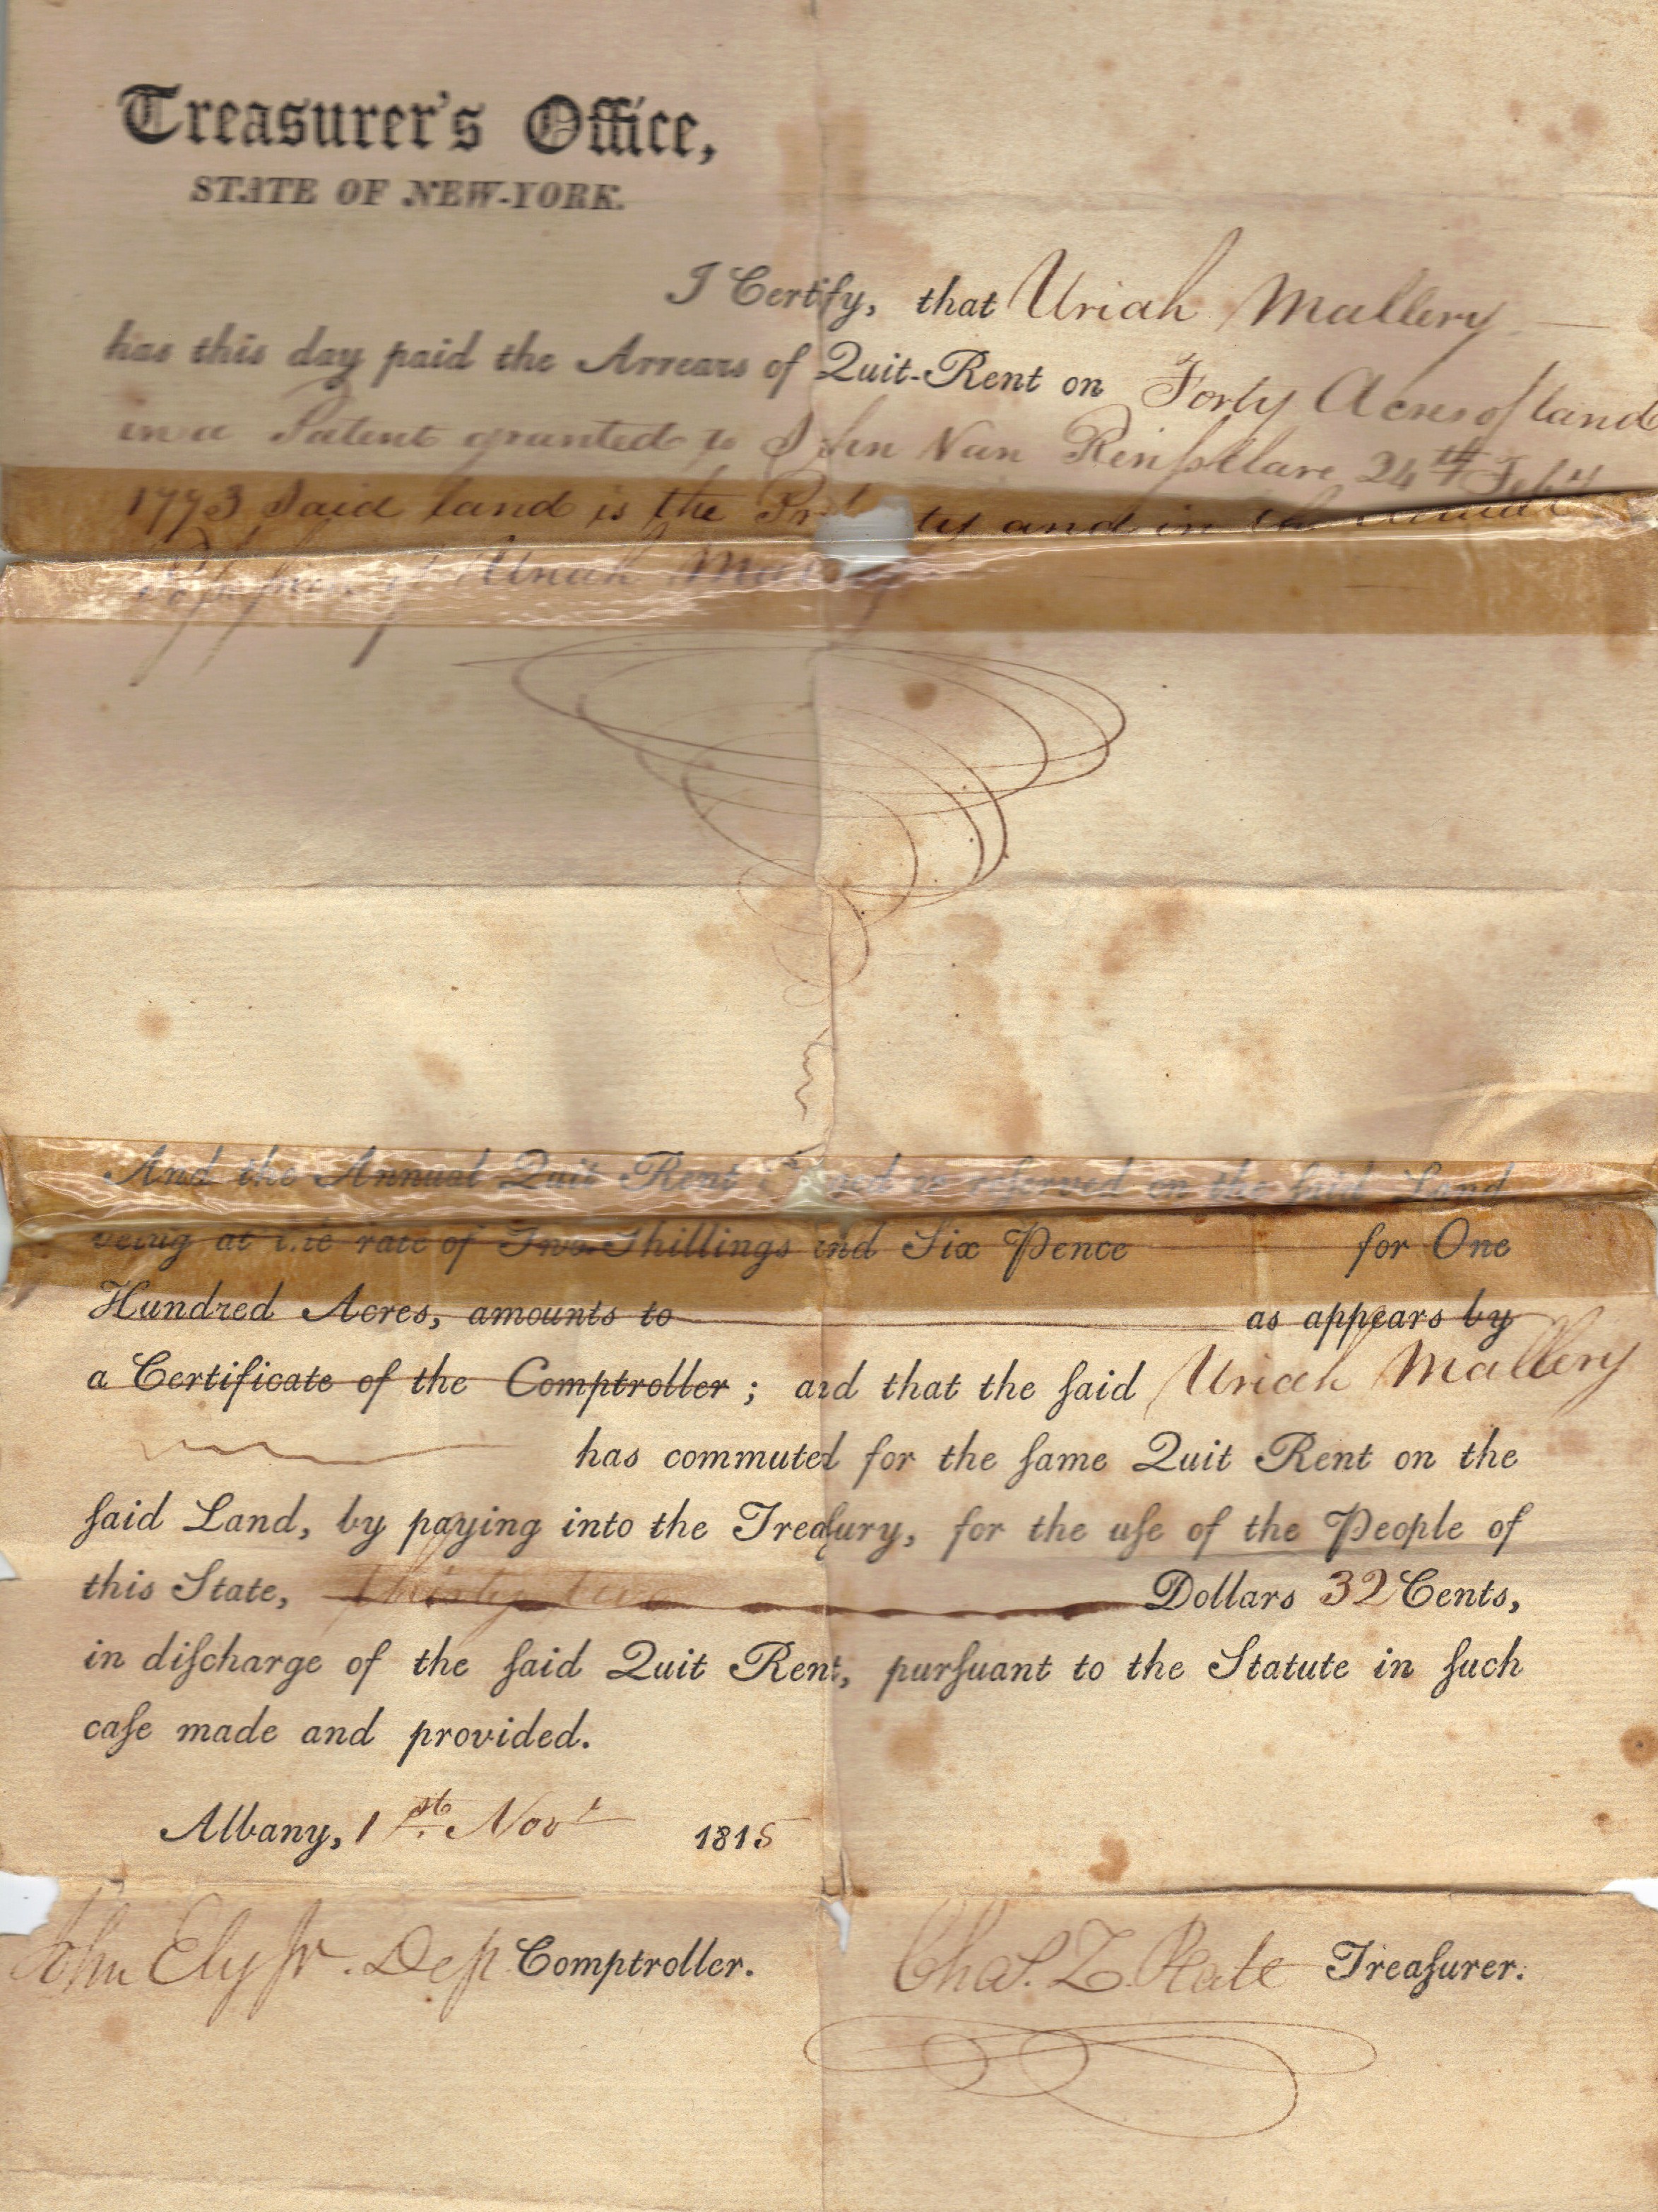 Treasurer's Office,
STATE OF NEW-YORK.
I Certify, that Uriah Mallery
has this day paid the Arrears of Quit-Rent on Forty Acres of land
in a Patent granted to John Van Renſsellare 24th Feby
1773 Said land is the Property and in the
of Uriah Mallery
And the Annual Quit Rent reſerved on the ſaid Land
being at the rate of Two Shillings and Six Pence for One
Hundred Acres, amounts to as appears by
a Certificate of the Comptroller ; and that the ſaid Uriah Mallery
has commuted for the ſame Quit Rent on the
ſaid Land, by paying into the Treaſury, for the uſe of the People of
this State, thirty two Dollars 32 Cents,
in diſcharge of the ſaid Quit Rent, purſuant to the Statute in ſuch
caſe made and provided.
Albany, 1st. Novr 1815
John Ely Jr. Dep Comptroller. Chas. Z. Platt Treaſurer.